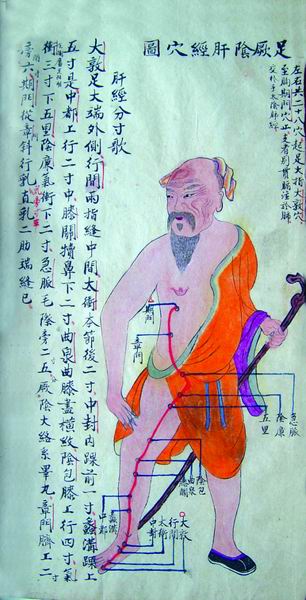 足厥陰肝經穴圖
左右共二十八穴起足大指大敦穴
至期門穴止支者別貫膈注於肺
交於手太陰肺經
肝經分寸歌
大敦足大端外側行間兩指縫中間太衝本節後二寸中封內踝前一寸蠡溝踝上
五寸是中都上行二寸中膝關犢鼻下二寸曲泉曲膝盡橫紋陰包膝上行四寸氣
衝三寸下五里陰廉氣衝下二寸急脈毛際旁二五厥陰大絡系睪丸章門臍上二
旁六期門從章斜行乳直乳二肋端縫已
期門
章門
急脈
陰廉
五里
陰包
曲泉
膝關
大敦
行間
太衝
中封
蠡溝
中都